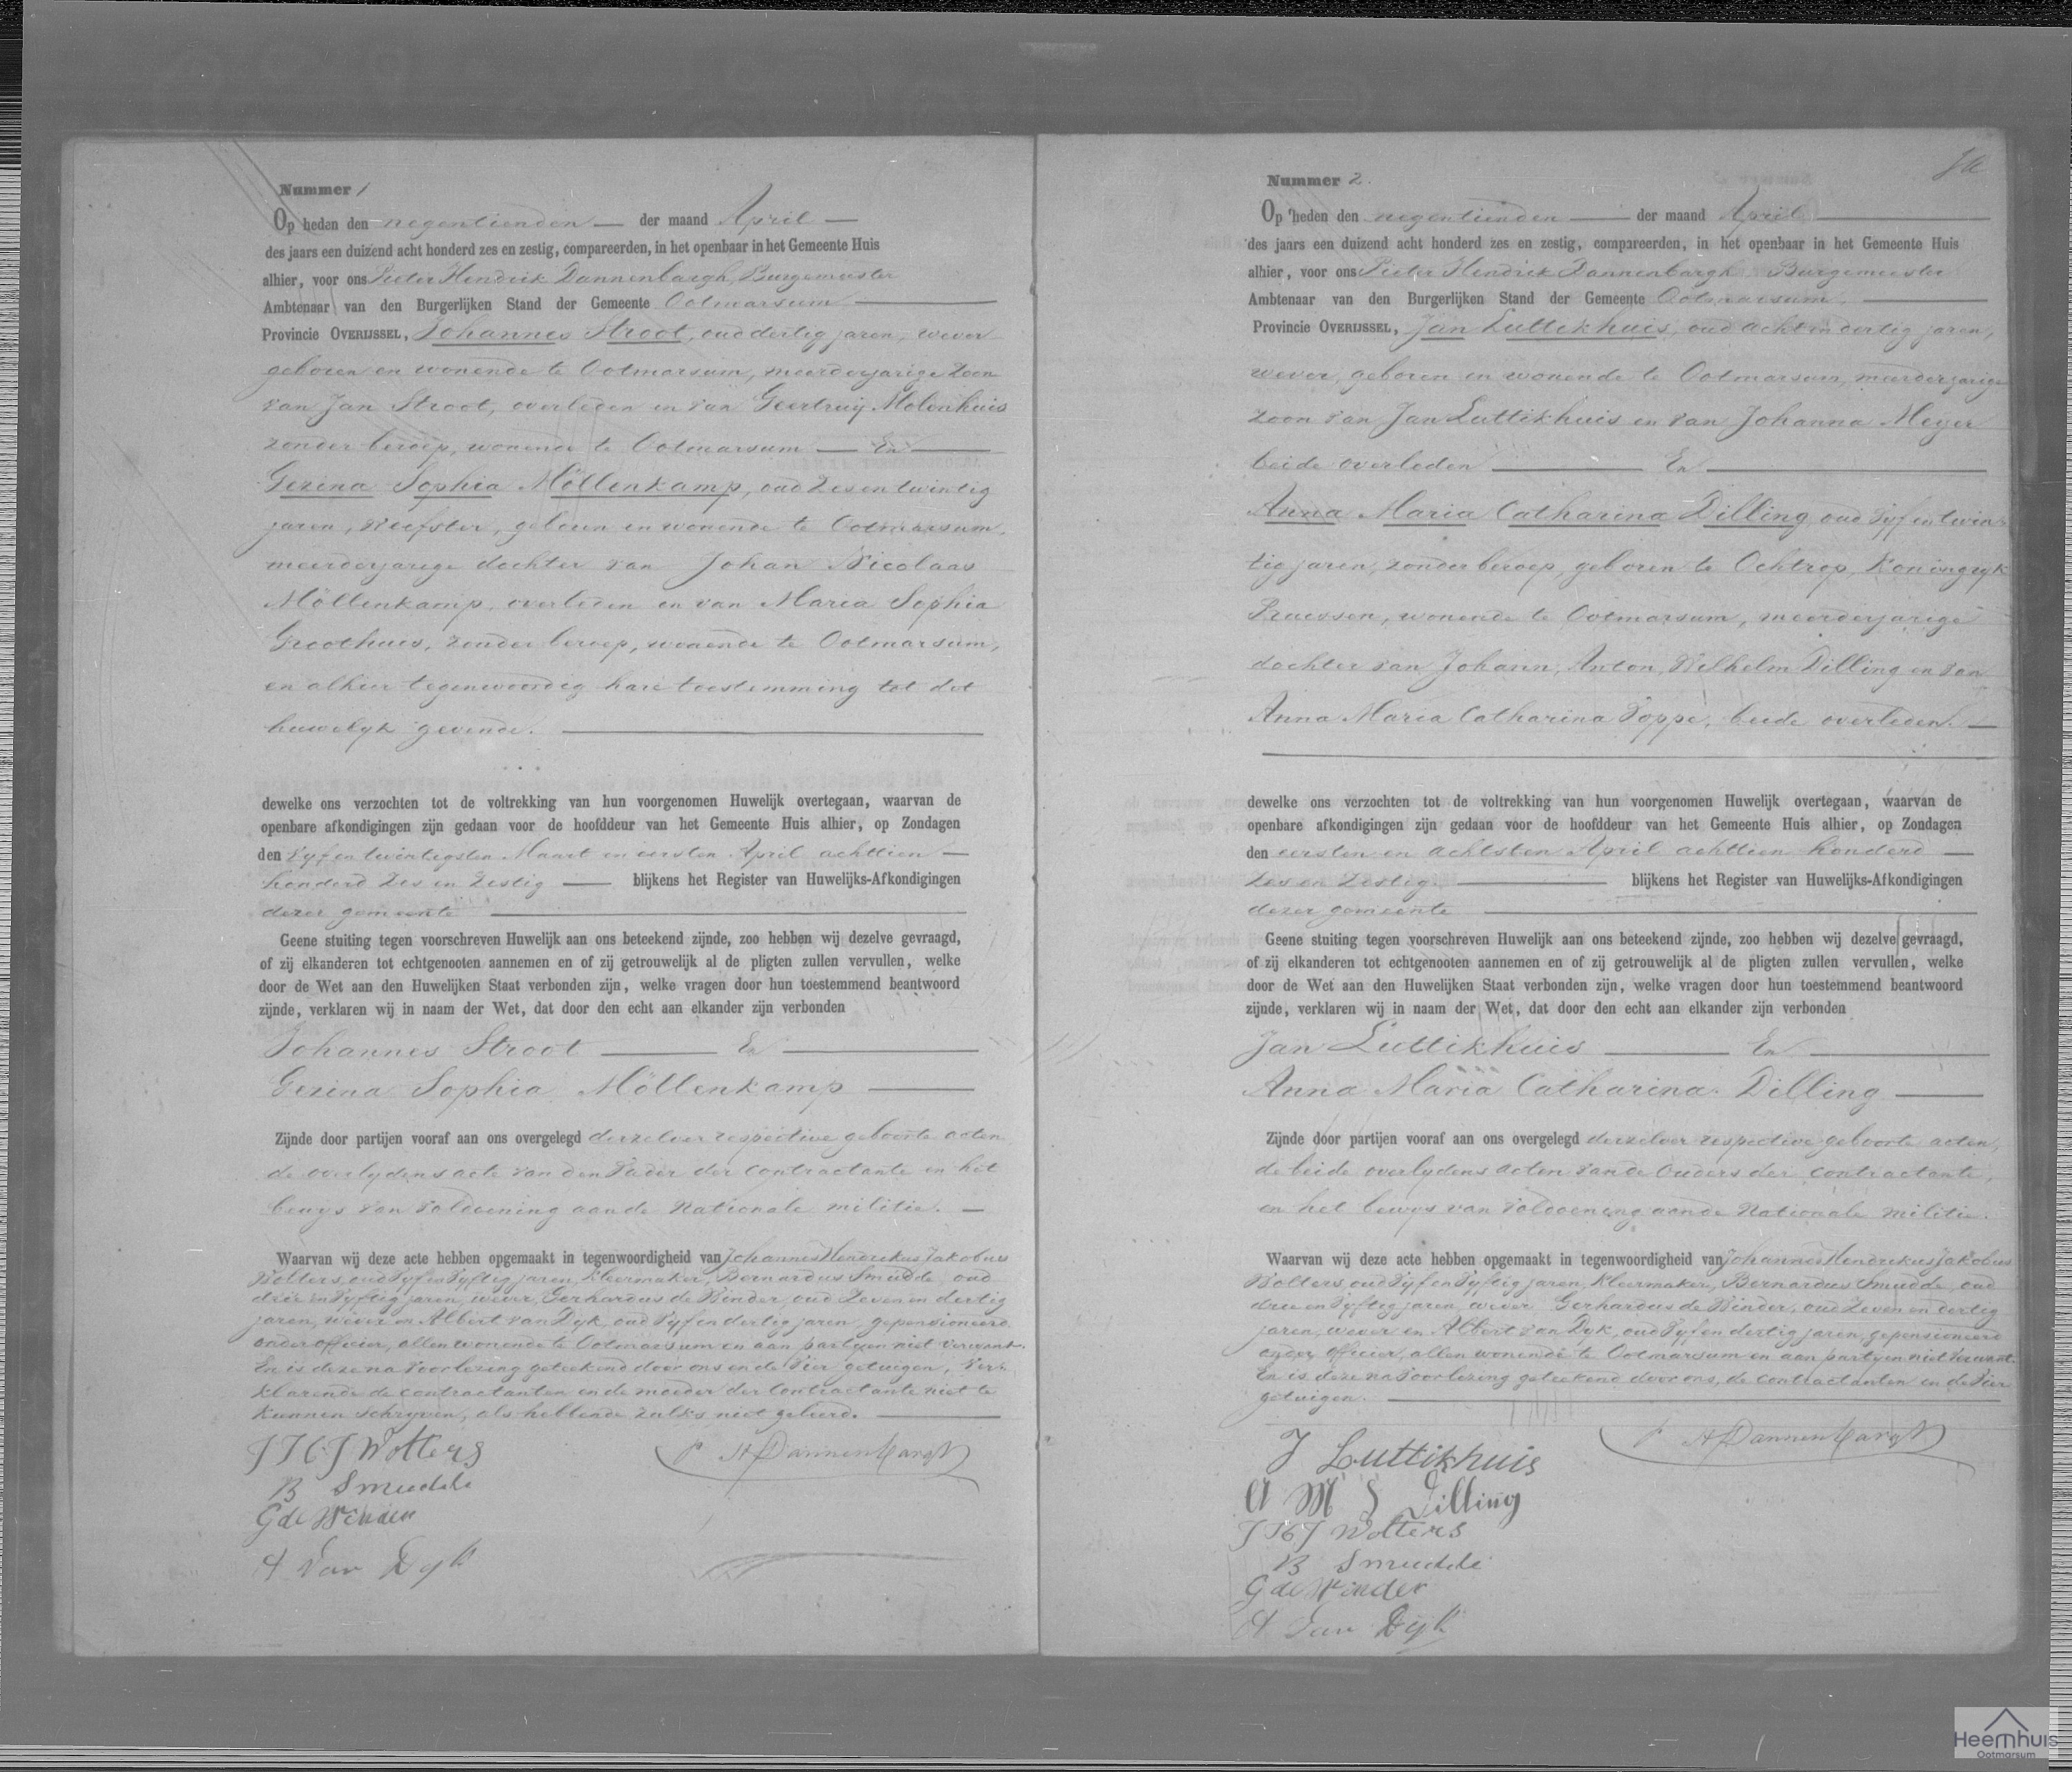 Nummer 1
Op heden den negentienden — der maand April —
des jaars een duizend acht honderd zes en zestig, compareerden, in het openbaar in het Gemeente Huis
alhier, voor ons Pieter Hendrik Dannenbargh, Burgemeester
Ambtenaar van den Burgerlijken Stand der Gemeente Ootmarsum —
Provincie OVERIJSSEL, Johannes Stroot, oud dertig jaren, wever
geboren en wonende te Ootmarsum, meerderjarige zoon
van Jan Stroot, overleden en van Geertruij Molenhuis
zonder beroep, wonende te Ootmarsum — En —
Gezina Sophia Möllenkamp, oud zes en twintig
jaren, weefster, geboren en wonende te Ootmarsum,
meerderjarige dochter van Johan Nicolaas
Möllenkamp, overleden en van Maria Sophia
Groothuis, zonder beroep, wonende te Ootmarsum,
en alhier tegenwoordig hare toestemming tot dit
huwelyk gevende. —
dewelke ons verzochten tot de voltrekking van hun voorgenomen Huwelijk overtegaan, waarvan de
openbare afkondigingen zijn gedaan voor de hoofddeur van het Gemeente Huis alhier, op Zondagen
den vyfentwintigsten Maart en eersten April achttien —
honderd zes en zestig — blijkens het Register van Huwelijks-Afkondigingen
dezer gemeente —
Geene stuiting tegen voorschreven Huwelijk aan ons beteekend zijnde, zoo hebben wij dezelve gevraagd,
of zij elkanderen tot echtgenooten aannemen en of zij getrouwelijk al de pligten zullen vervullen, welke
door de Wet aan den Huwelijken Staat verbonden zijn, welke vragen door hun toestemmend beantwoord
zijnde, verklaren wij in naam der Wet, dat door den echt aan elkander zijn verbonden
Johannes Stroot — En —
Gezina Sophia Möllenkamp —
Zijnde door partijen vooraf aan ons overgelegd derzelver respective geboorte acten
de overlydens acte van den Vader der contractante en het
bewys van voldoening aan de Nationale militie. —
Waarvan wij deze acte hebben opgemaakt in tegenwoordigheid van Johannes Hendrikus Jakobus
Wolters, oud vyf en vyftig jaren, kleermaker, Bernardus Smudde, oud
drie en vyftig jaren, wever, Gerhardus de Winder, oud zeven en dertig
jaren, wever en Albert van Dyk, oud vyf en dertig jaren, gepensioneerd
onderofficier, allen wonende te Ootmarsum en aan partyen niet verwant.
En is deze na voorlezing geteekend door ons en de vier getuigen, ver-
klarende de contractanten en de moeder der contractante niet te
kunnen schryven, als hebbende zulks niet geleerd. —
J H J Wolters
P H Dannenbargh
B Smudde
G de Winder
A van Dyk
Nummer 2.
Op heden den negentienden — der maand April —
des jaars een duizend acht honderd zes en zestig, compareerden, in het openbaar in het Gemeente Huis
alhier, voor ons Pieter Hendrik Dannenbargh Burgemeester
Ambtenaar van den Burgerlijken Stand der Gemeente Ootmarsum, —
Provincie OVERIJSSEL, Jan Luttikhuis, oud acht en dertig jaren,
wever, geboren en wonende te Ootmarsum, meerderjarige
zoon van Jan Luttikhuis en van Johanna Meyer
beide overleden — En —
Anna Maria Catharina Dilling, oud vyf en twin-
tig jaren, zonder beroep, geboren te Ochtrop, Koningryk
Pruissen, wonende te Ootmarsum, meerderjarige
dochter van Johann, Anton, Wilhelm Dilling en van
Anna Maria Catharina Poppe, beide overleden. —
dewelke ons verzochten tot de voltrekking van hun voorgenomen Huwelijk overtegaan, waarvan de
openbare afkondigingen zijn gedaan voor de hoofddeur van het Gemeente Huis alhier, op Zondagen
den eersten en achtsten April achttien honderd —
zes en zestig, — blijkens het Register van Huwelijks-Afkondigingen
dezer gemeente —
Geene stuiting tegen voorschreven Huwelijk aan ons beteekend zijnde, zoo hebben wij dezelve gevraagd,
of zij elkanderen tot echtgenooten aannemen en of zij getrouwelijk al de pligten zullen vervullen, welke
door de Wet aan den Huwelijken Staat verbonden zijn, welke vragen door hun toestemmend beantwoord
zijnde, verklaren wij in naam der Wet, dat door den echt aan elkander zijn verbonden
Jan Luttikhuis — En —
Anna Maria Catharina Dilling —
Zijnde door partijen vooraf aan ons overgelegd derzelver respective geboorte acten,
de beide overlydens acten van de Ouders der contractante,
en het bewys van voldoening aan de Nationale militie.
Waarvan wij deze acte hebben opgemaakt in tegenwoordigheid van Johannes Hendrikus Jakobus
Wolters, oud vyf en vyftig jaren, kleermaker, Bernardus Smudde, oud
drie en vyftig jaren, wever Gerhardus de Winder, oud zeven en dertig
jaren, wever en Albert van Dyk, oud vyf en dertig jaren, gepensioneerd
onder officier, allen wonende te Ootmarsum en aan partyen niet verwant.
En is deze na voorlezing geteekend door ons, de contractanten en de vier
getuigen. —
J Luttikhuis
P H Dannenbargh
A M C Dilling
J H J Wolters
B Smudde
G de Winder
A van Dyk
Heemhuis
Ootmarsum